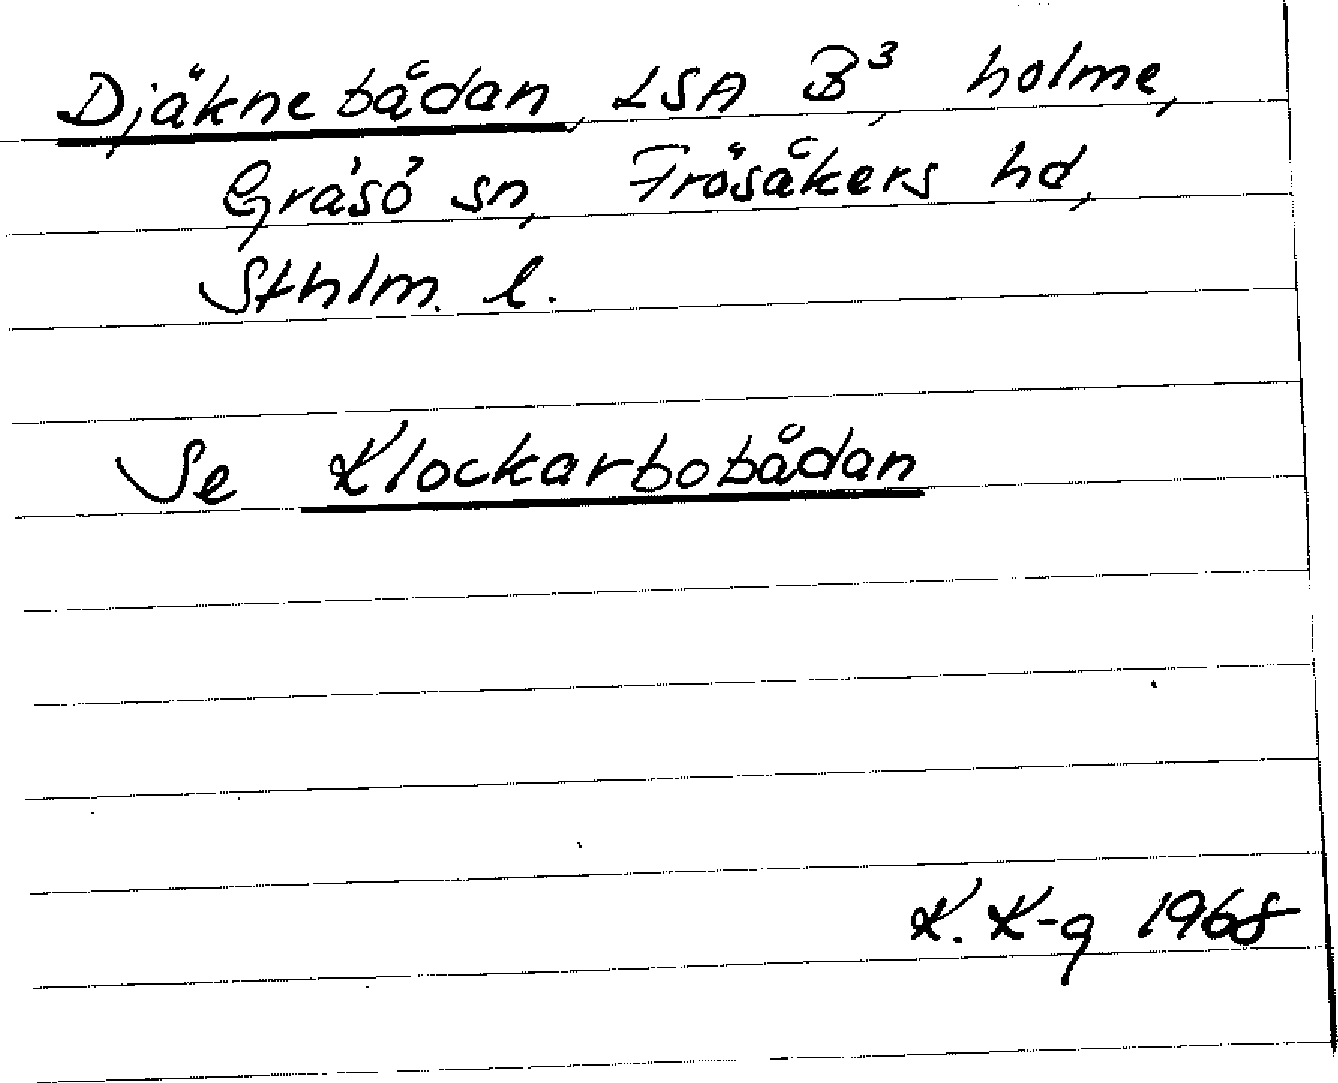 Djäknebådan, LSA B³, holme,
Gräsö sn, Frösåkers hd,
Sthlm. l.
Se Klockarbobådan
K. K-g 1968